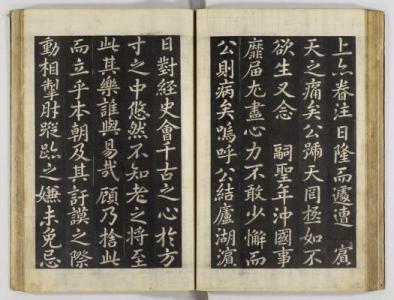 上亦眷注日隆而遽遭　賓
天之痛矣公號天罔極如不
欲生又念　嗣聖年沖國事
靡届尤盡心力不敢少懈而
公則病矣嗚呼公結廬湖濱
日對經史會千古之心於方
寸之中悠然不知老之將至
此其樂誰與易哉顧乃捨此
而立乎本朝及其訏謨之際
動相掣肘蹤跡之嫌未免忌